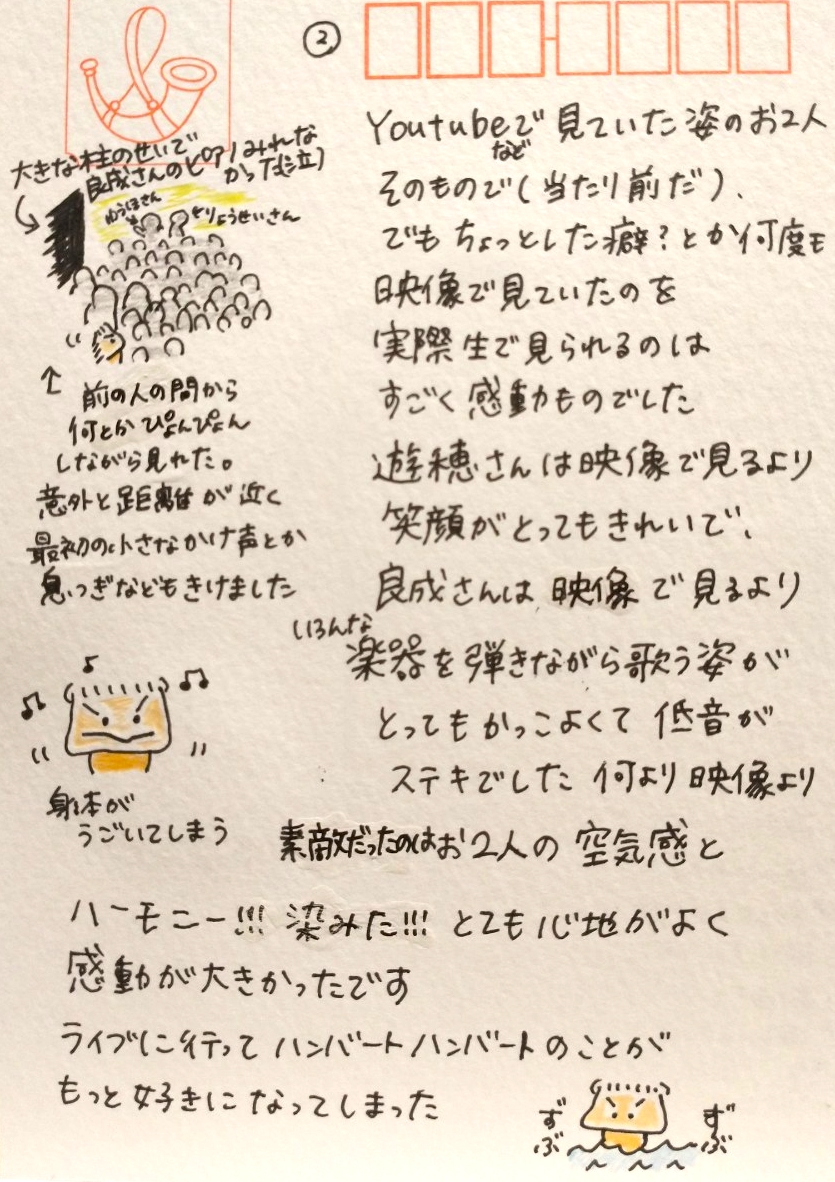 ②
大きな柱のせいで
良成さんのピアノみれな
かった(泣)
ゆうほさん
りょうせいさん
前の人の間から
何とかぴょんぴょん
しながら見れた。
意外と距離が近く
最初の小さなかけ声とか
息つぎなどもきけました
身体が
うごいてしまう
Youtubeで見ていた姿のお2人
など
そのもので(当たり前だ)、
でもちょっとした癖?とか何度も
映像で見ていたのを
実際生で見られるのは
すごく感動ものでした
遊穂さんは映像で見るより
笑顔がとってもきれいで、
良成さんは映像で見るより
いろんな
楽器を弾きながら歌う姿が
とってもかっこよくて低音が
ステキでした何より映像より
素敵だったのはお2人の空気感と
ハーモニー!!!染みた!!!とても心地がよく
感動が大きかったです
ライブに行ってハンバートハンバートのことが
もっと好きになってしまった
ずぶ
ずぶ